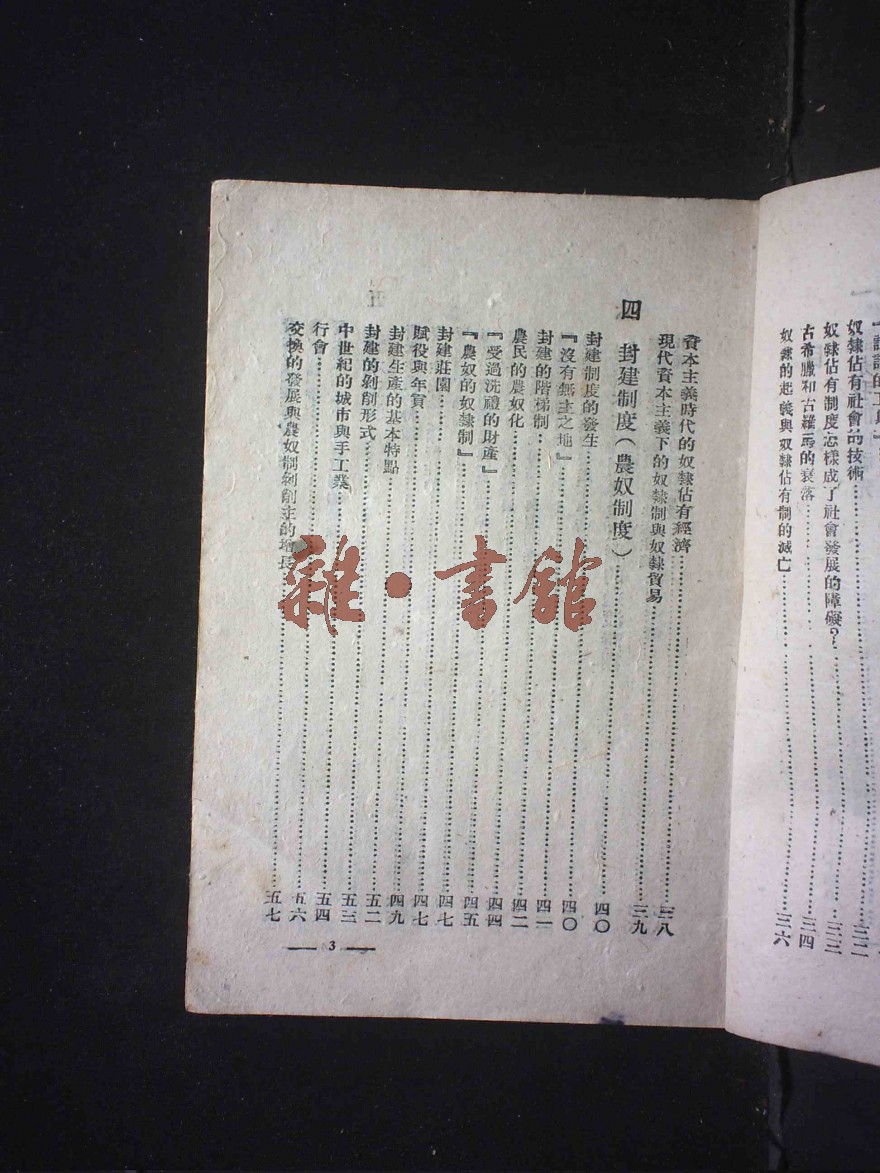 奴隸佔有社會的技術……三二
奴隸佔有制度怎樣成了社會發展的障礙?……三三
古希臘和古羅馬的衰落……三四
奴隸的起義與奴隸佔有制的滅亡……三六
資本主義時代的奴隸佔有經濟……三八
現代資本主義下的奴隸制與奴隸貿易……三九
四 封建制度(農奴制度)……四〇
封建制度的發生……四〇
『沒有無主之地』……四一
封建的階梯制……四二
農民的農奴化……四四
『受過洗禮的財產』……四五
『農奴的奴隸制』……四七
封建莊園……四七
賦役與年貢……四九
封建生產的基本特點……五二
封建的剝削形式……五三
中世紀的城市與手工業……五四
行會……五六
交換的發展與農奴制剝削主的增長……五七
3
雜·書館